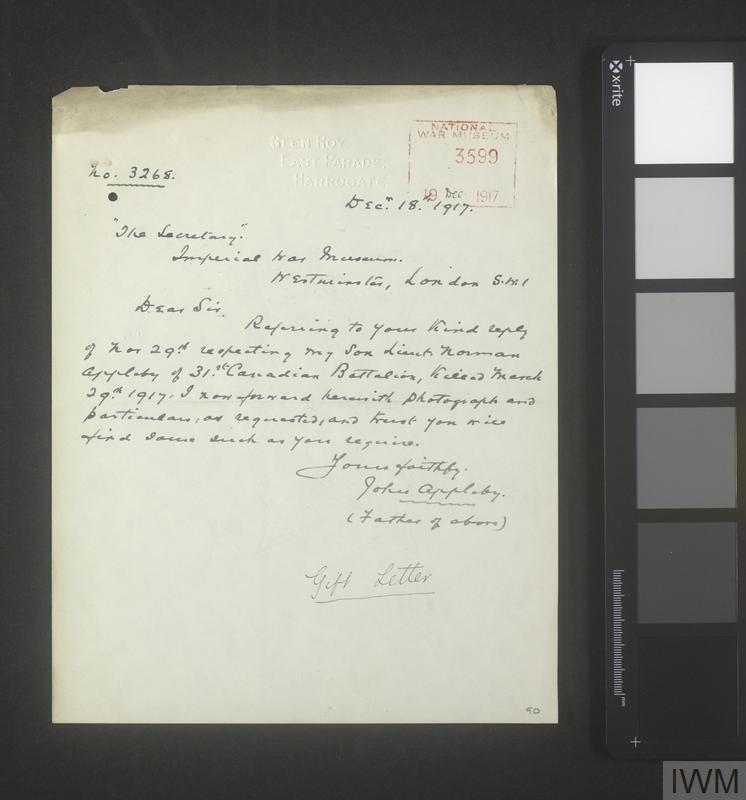 GLEN ROY,
EAST PARADE,
HARROGATE.
NATIONAL
WAR MUSEUM
3599
19 Dec 1917
No. 3268.
Dec.r 18.th 1917.
"The Secretary".
Imperial War Museum.
Westminster, London S.W.1
Dear Sir
Referring to your kind reply
of Nov 29th respecting my Son Lieut. Norman
Appleby of 31.st Canadian Battalion, Killed March
29.th 1917. I now forward herewith photograph and
particulars, as requested, and trust you will
find same such as you require.
Yours faithfy.
John Appleby.
(Father of above)
Gift Letter
90
x-rite
mm
IWM